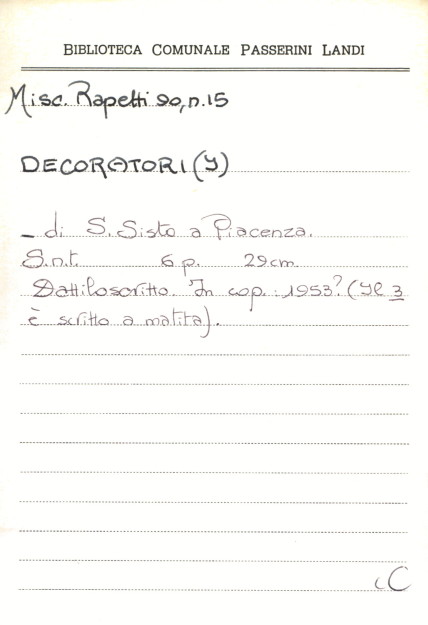 BIBLIOTECA COMUNALE PASSERINI LANDI
Misc. Rapetti 90, n. 15
DECORATORI (I)
_ di S. Sisto a Piacenza.
S.n.t. 6 p. 29 cm.
Dattiloscritto. In cop.: 1953? (Il 3
è scritto a matita).
C